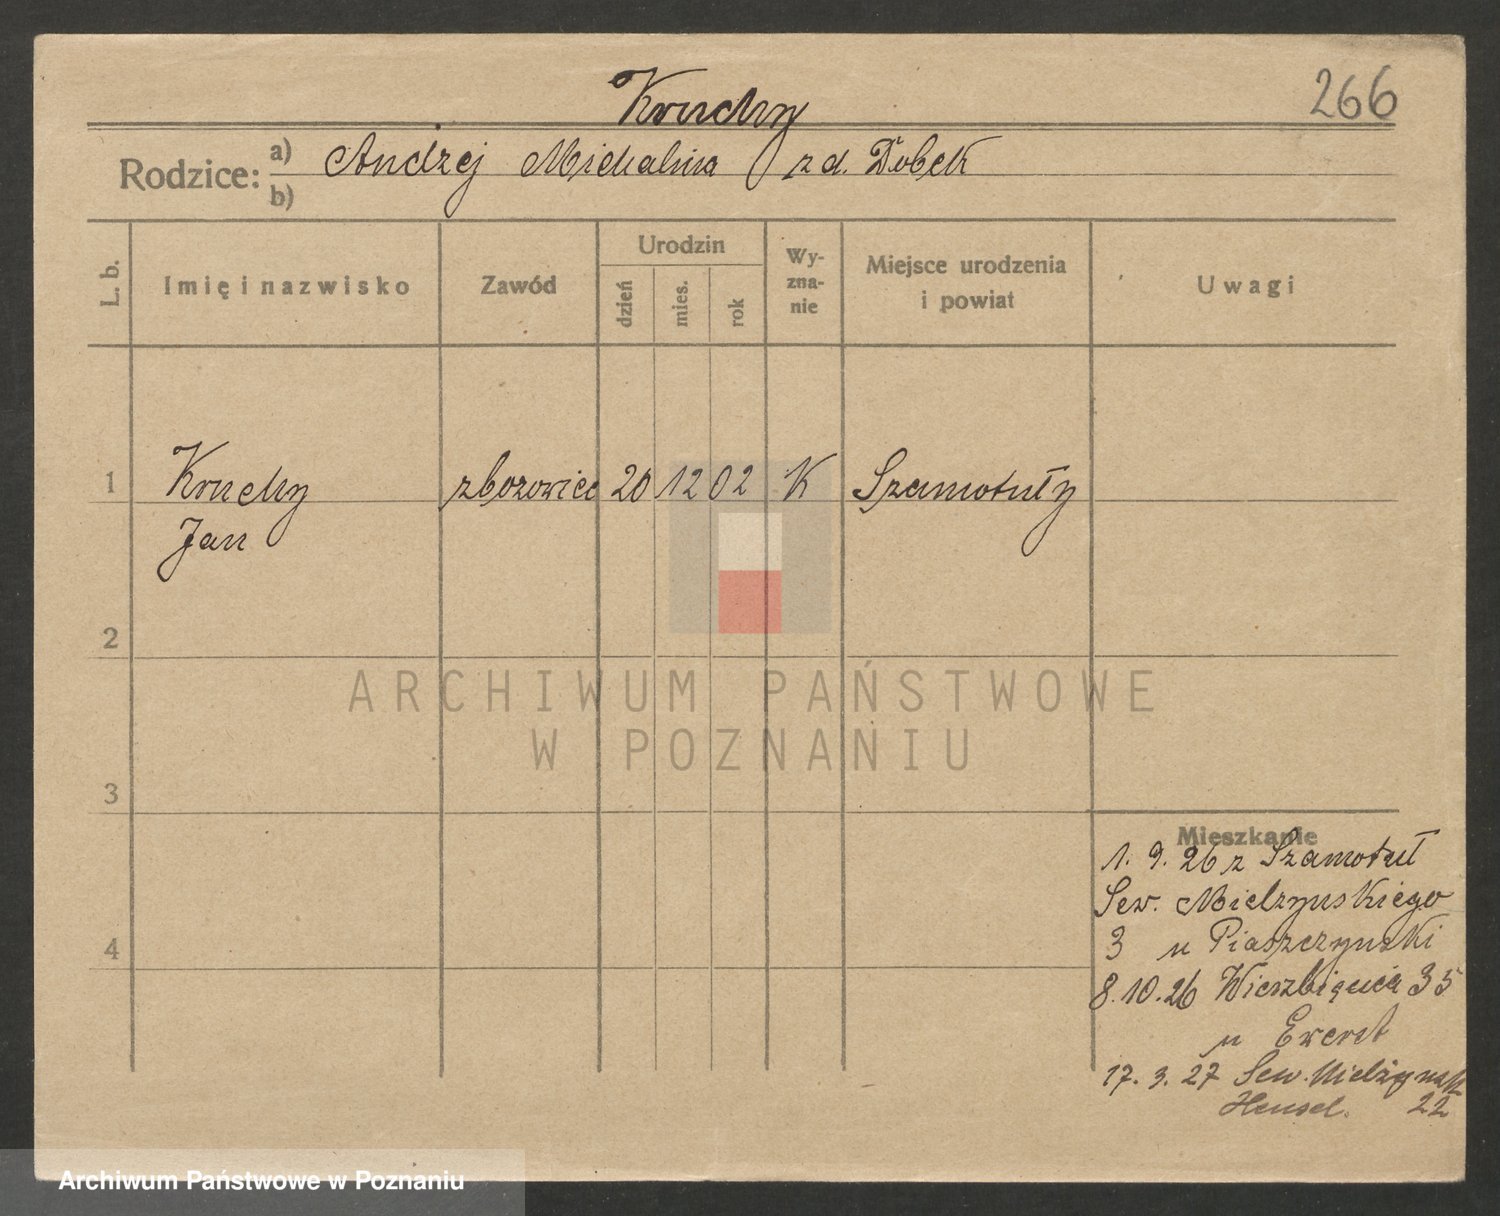 Kruchy
266
Rodzice: a) Andrzej Michalina zd. Dobek
b)
L. b. Imię i nazwisko Zawód Urodzin dzień mies. rok Wyznanie Miejsce urodzenia i powiat Uwagi
1 Kruchy zbozowiec 20 12 02 K Szamotuły
Jan
2
3
4
Mieszkanie
1. 9. 26 z Szamotuł
Sew. Mielzynskiego
3 u Piaszczynski
8.10.26 Wierzbięcia 35
u Ewerst
17. 3. 27 Sew. Mielżynsk
Hensel. 22
ARCHIWUM PAŃSTWOWE
W POZNANIU
Archiwum Państwowe w Poznaniu